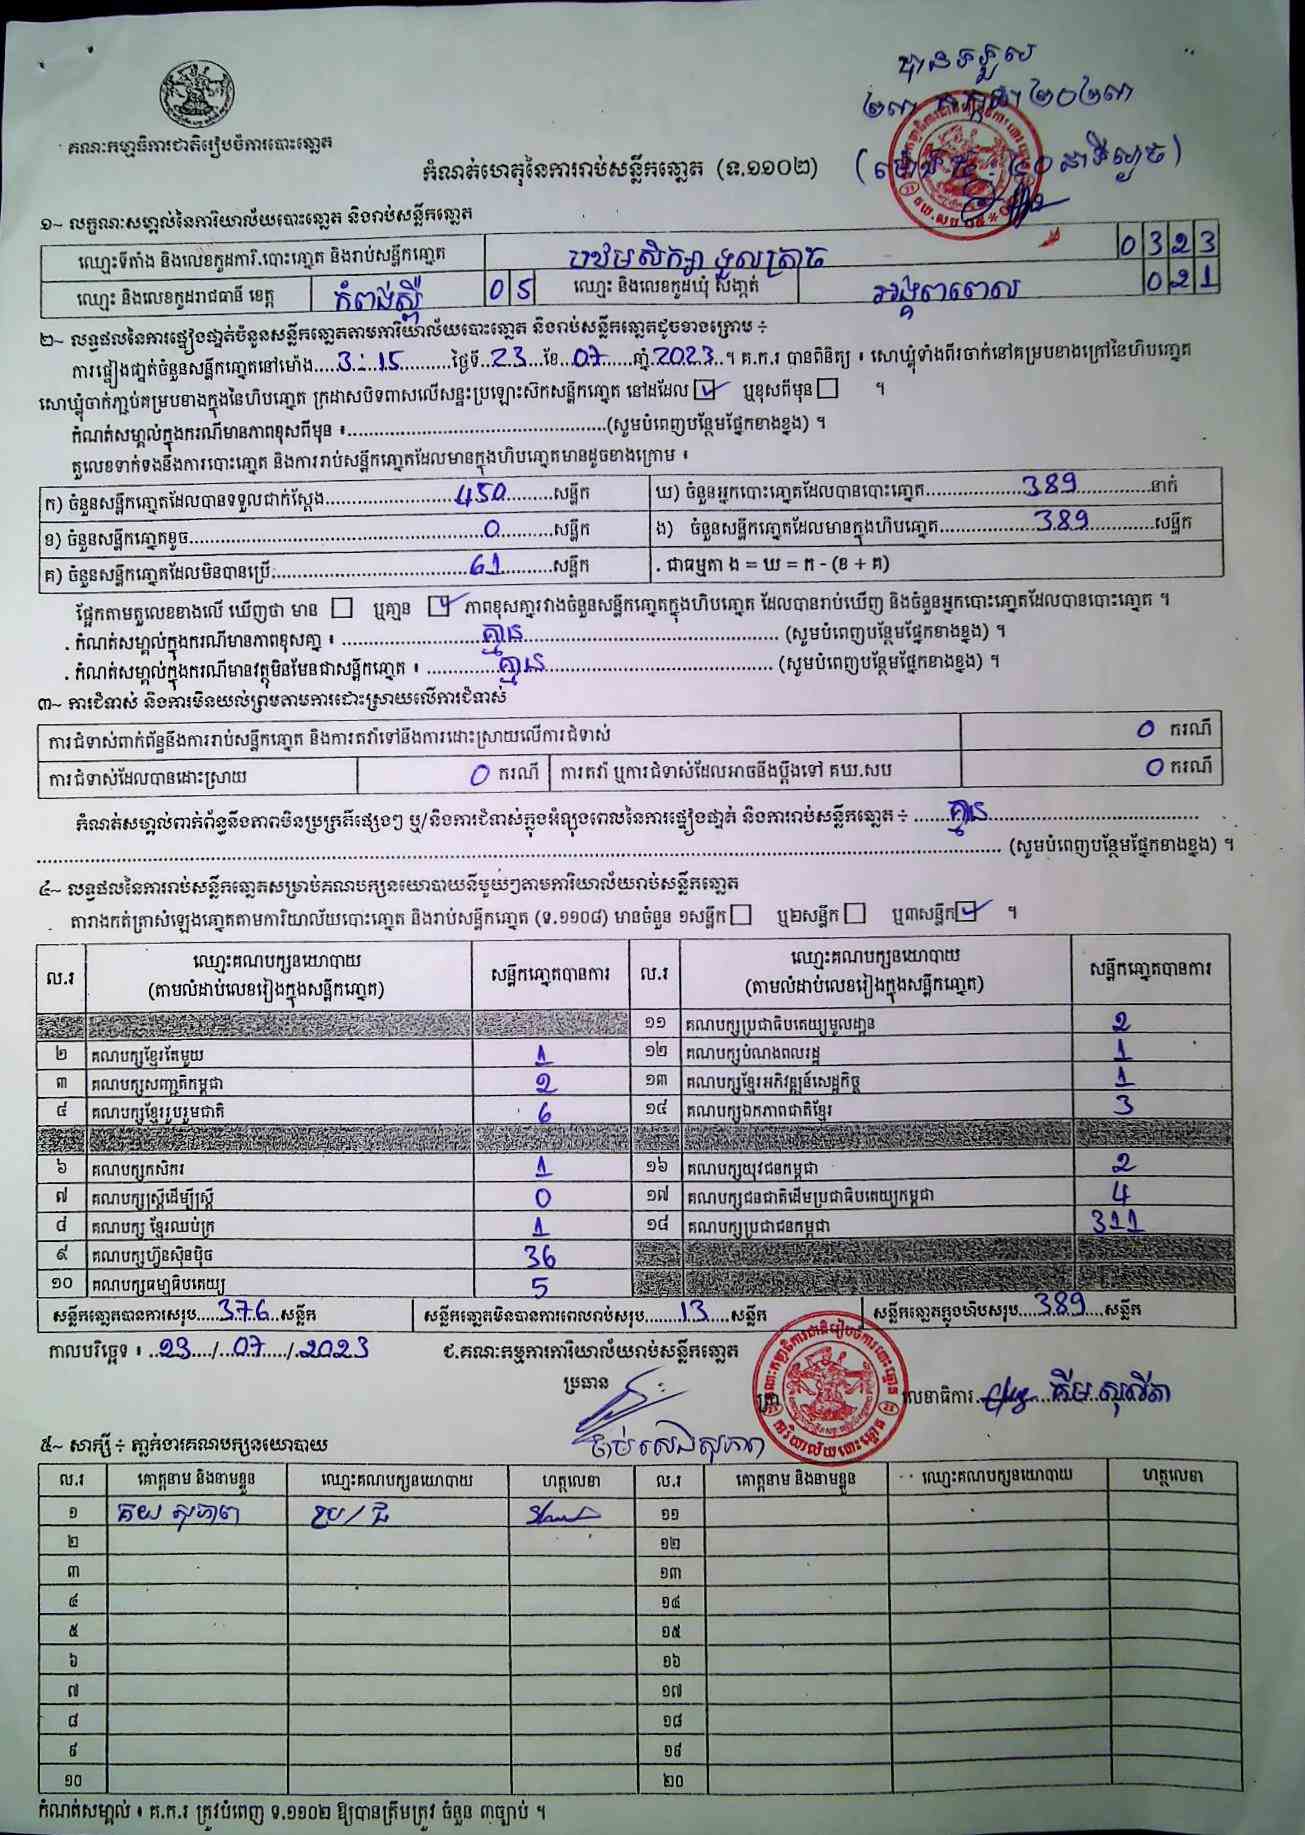 បានទទួល
២៣ កក្កដា ២០២៣
គណៈកម្មាធិការជាតិរៀបចំការបោះឆ្នោត
កំណត់ហេតុនៃការរាប់សន្លឹកឆ្នោត (ទ.១១០២)
១~ លក្ខណៈសម្គាល់នៃការិយាល័យបោះឆ្នោត និងរាប់សន្លឹកឆ្នោត
ឈ្មោះទីតាំង និងលេខកូដការិ.បោះឆ្នោត និងរាប់សន្លឹកឆ្នោត បឋមសិក្សា ទួលត្រាច 0323
ឈ្មោះ និងលេខកូដរាជធានី ខេត្ត កំពង់ស្ពឺ 05 ឈ្មោះ និងលេខកូដឃុំ សង្កាត់ អង្គពពេល 021
២~ លទ្ធផលនៃការផ្ទៀងផ្ទាត់ចំនួនសន្លឹកឆ្នោតតាមការិយាល័យបោះឆ្នោត និងរាប់សន្លឹកឆ្នោតដូចខាងក្រោម ÷
ការផ្ទៀងផ្ទាត់ចំនួនសន្លឹកឆ្នោតនៅម៉ោង 3:15 ថ្ងៃទី 23 ខែ 07 ឆ្នាំ 2023 ។ គ.ក.រ បានពិនិត្យ ៖ សោឃ្លុំទាំងពីរចាក់នៅគម្របខាងក្រៅនៃហិបឆ្នោត
សោឃ្លុំចាក់ភ្ជាប់គម្របខាងក្នុងនៃហិបឆ្នោត ក្រដាសបិទពាសលើសន្ទះប្រឡោះស៊កសន្លឹកឆ្នោត នៅដដែល ☑ ឬខុសពីមុន ☐ ។
កំណត់សម្គាល់ក្នុងករណីមានភាពខុសពីមុន ៖ (សូមបំពេញបន្ថែមផ្នែកខាងខ្នង) ។
តួលេខទាក់ទងនឹងការបោះឆ្នោត និងការរាប់សន្លឹកឆ្នោតដែលមានក្នុងហិបឆ្នោតមានដូចខាងក្រោម ៖
ក) ចំនួនសន្លឹកឆ្នោតដែលបានទទួលជាក់ស្តែង 450 សន្លឹក ឃ) ចំនួនអ្នកបោះឆ្នោតដែលបានបោះឆ្នោត 389 នាក់
ខ) ចំនួនសន្លឹកឆ្នោតខូច 0 សន្លឹក ង) ចំនួនសន្លឹកឆ្នោតដែលមានក្នុងហិបឆ្នោត 389 សន្លឹក
គ) ចំនួនសន្លឹកឆ្នោតដែលមិនបានប្រើ 61 សន្លឹក . ជាធម្មតា ង = ឃ = ក - (ខ + គ)
ផ្អែកតាមតួលេខខាងលើ ឃើញថា មាន ☐ ឬគ្មាន ☑ ភាពខុសគ្នារវាងចំនួនសន្លឹកឆ្នោតក្នុងហិបឆ្នោត ដែលបានរាប់ឃើញ និងចំនួនអ្នកបោះឆ្នោតដែលបានបោះឆ្នោត ។
. កំណត់សម្គាល់ក្នុងករណីមានភាពខុសគ្នា ៖ គ្មាន (សូមបំពេញបន្ថែមផ្នែកខាងខ្នង) ។
. កំណត់សម្គាល់ក្នុងករណីមានវត្ថុមិនមែនជាសន្លឹកឆ្នោត ៖ គ្មាន (សូមបំពេញបន្ថែមផ្នែកខាងខ្នង) ។
៣~ ការជំទាស់ និងការមិនយល់ព្រមតាមការដោះស្រាយលើការជំទាស់
ការជំទាស់ពាក់ព័ន្ធនឹងការរាប់សន្លឹកឆ្នោត និងការតវ៉ាទៅនឹងការដោះស្រាយលើការជំទាស់ 0 ករណី
ការជំទាស់ដែលបានដោះស្រាយ 0 ករណី ការតវ៉ា ឬការជំទាស់ដែលអាចនឹងប្តឹងទៅ គឃ.សប 0 ករណី
កំណត់សម្គាល់ពាក់ព័ន្ធនឹងភាពមិនប្រក្រតីផ្សេងៗ ឬ/និងការជំទាស់ក្នុងអំឡុងពេលនៃការផ្ទៀងផ្ទាត់ និងការរាប់សន្លឹកឆ្នោត ÷ គ្មាន
(សូមបំពេញបន្ថែមផ្នែកខាងខ្នង) ។
៤~ លទ្ធផលនៃការរាប់សន្លឹកឆ្នោតសម្រាប់គណបក្សនយោបាយនីមួយៗតាមការិយាល័យរាប់សន្លឹកឆ្នោត
តារាងកត់ត្រាសំឡេងឆ្នោតតាមការិយាល័យបោះឆ្នោត និងរាប់សន្លឹកឆ្នោត (ទ.១១០៨) មានចំនួន ១សន្លឹក ☐ ឬ២សន្លឹក ☐ ឬ៣សន្លឹក ☑ ។
ល.រ ឈ្មោះគណបក្សនយោបាយ (តាមលំដាប់លេខរៀងក្នុងសន្លឹកឆ្នោត) សន្លឹកឆ្នោតបានការ ល.រ ឈ្មោះគណបក្សនយោបាយ (តាមលំដាប់លេខរៀងក្នុងសន្លឹកឆ្នោត) សន្លឹកឆ្នោតបានការ
១១ គណបក្សប្រជាធិបតេយ្យមូលដ្ឋាន 2
២ គណបក្សខ្មែរតែមួយ 1 ១២ គណបក្សបំណងពលរដ្ឋ 1
៣ គណបក្សសញ្ជាតិកម្ពុជា 2 ១៣ គណបក្សខ្មែរអភិវឌ្ឍន៍សេដ្ឋកិច្ច 1
៤ គណបក្សខ្មែររួបរួមជាតិ 6 ១៤ គណបក្សឯកភាពជាតិខ្មែរ 3
៦ គណបក្សកសិករ 1 ១៦ គណបក្សយុវជនកម្ពុជា 2
៧ គណបក្សស្រ្តីដើម្បីស្រ្តី 0 ១៧ គណបក្សជនជាតិដើមប្រជាធិបតេយ្យកម្ពុជា 4
៨ គណបក្ស ខ្មែរឈប់ក្រ 1 ១៨ គណបក្សប្រជាជនកម្ពុជា 311
៩ គណបក្សហ្វ៊ុនស៊ិនប៉ិច 36
១០ គណបក្សធម្មាធិបតេយ្យ 5
សន្លឹកឆ្នោតបានការសរុប 376 សន្លឹក សន្លឹកឆ្នោតមិនបានការពេលរាប់សរុប 13 សន្លឹក សន្លឹកឆ្នោតក្នុងហិបសរុប 389 សន្លឹក
កាលបរិច្ឆេទ ៖ 23/07/2023 ជ.គណៈកម្មការការិយាល័យរាប់សន្លឹកឆ្នោត
ប្រធាន
លេខាធិការ គីម សុលីតា
៥~ សាក្សី ÷ ភ្នាក់ងារគណបក្សនយោបាយ
ល.រ គោត្តនាម និងនាមខ្លួន ឈ្មោះគណបក្សនយោបាយ ហត្ថលេខា ល.រ គោត្តនាម និងនាមខ្លួន ឈ្មោះគណបក្សនយោបាយ ហត្ថលេខា
១ ១១
២ ១២
៣ ១៣
៤ ១៤
៥ ១៥
៦ ១៦
៧ ១៧
៨ ១៨
៩ ១៩
១០ ២០
កំណត់សម្គាល់ ៖ គ.ក.រ ត្រូវបំពេញ ទ.១១០២ ឱ្យបានត្រឹមត្រូវ ចំនួន ៣ច្បាប់ ។